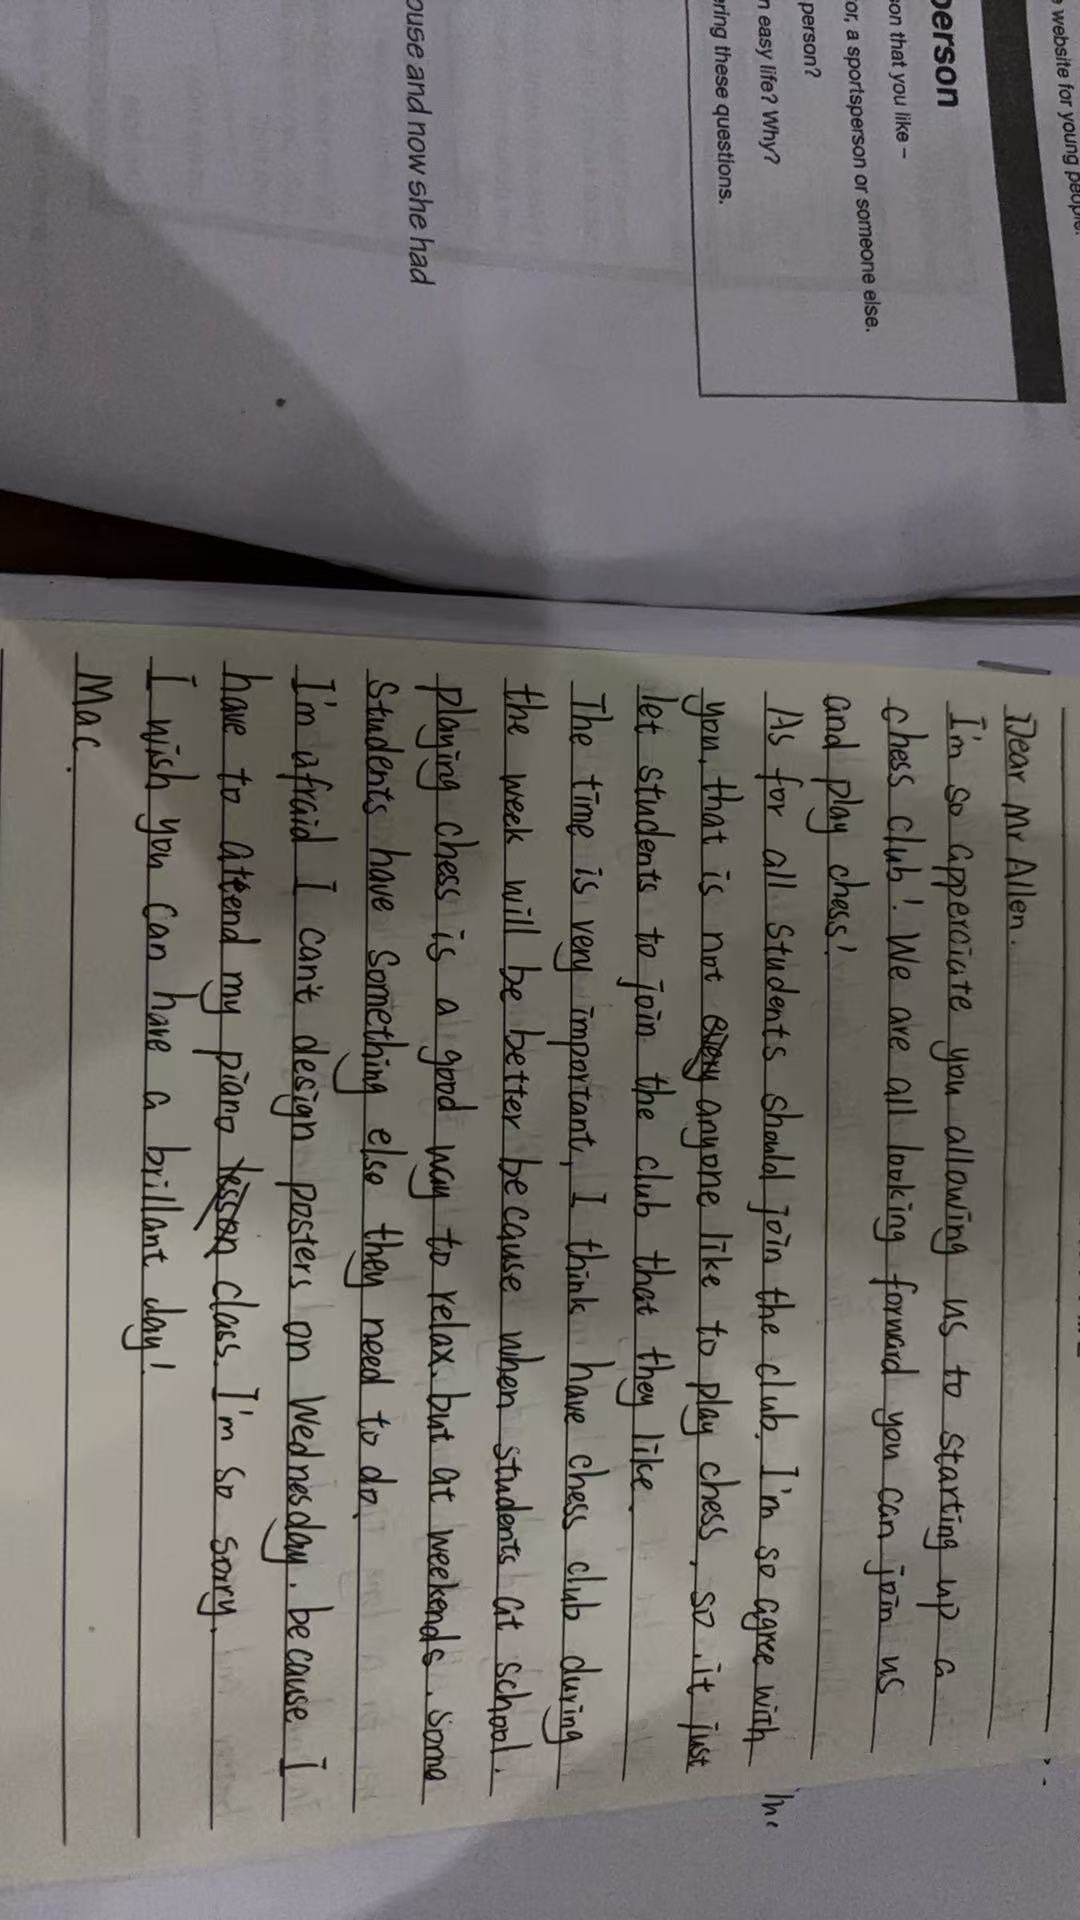 website for young people.
person
son that you like –
or, a sportsperson or someone else.
person?
n easy life? Why?
ering these questions.
ouse and now she had
Dear Mr Allen.
I'm so apperciate you allowing us to starting up a
chess club! We are all looking forward you can join us
and play chess!
As for all students should join the club. I'm so agree with
you, that is not every anyone like to play chess, so it just
let students to join the club that they like.
The time is very important, I think have chess club during
the week will be better because when students at school.
playing chess is a good way to relax. but at weekends. some
students have something else they need to do.
I'm afraid I can't design posters on Wednesday. because I
have to attend my piano lesson class. I'm so sorry.
I wish you can have a brillant day!
Mac.